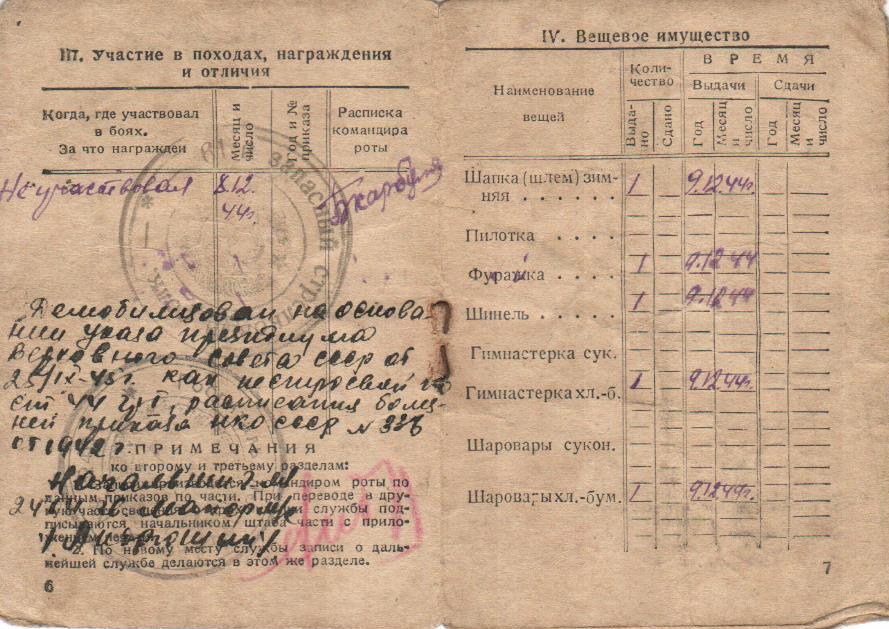 III. Участие в походах, награждения
и отличия
Когда, где участвовал
в боях.
За что награжден
Месяц и
число
Год и №
приказа
Расписка
командира
роты
Не участвовал 8.12.
44г.
Запасный
Демобилизован на основа-
нии указа президиума
Верховного Совета СССР от
25/IX-45г. как
ст 44 расписания болез-
ней приказа НКО СССР № 336
от 1942 г.
ПРИМЕЧАНИЯ
ко второму и третьему разделам:
командиром роты по
данным приказов по части. При переводе в дру-
службы под-
писываются начальником штаба части с прило-
жением
2. По новому месту службы записи о даль-
нейшей службе делаются в этом же разделе.
6
IV. Вещевое имущество
Наименование
вещей
Коли-
чество
ВРЕМЯ
Выдачи
Сдачи
Выда-
но
Сдано
Год
Месяц
и
число
Год
Месяц
и
число
Шапка (шлем) зим-
няя . . . . . . 1 9.12.44г.
Пилотка . . . .
Фуражка . . . . 1 9.12.44
Шинель . . . . . 1 9.12.44
Гимнастерка сук.
Гимнастерка хл.-б. 1 9.12.44г.
Шаровары сукон.
Шаровары хл.-бум. 1 9.12.44г.
7